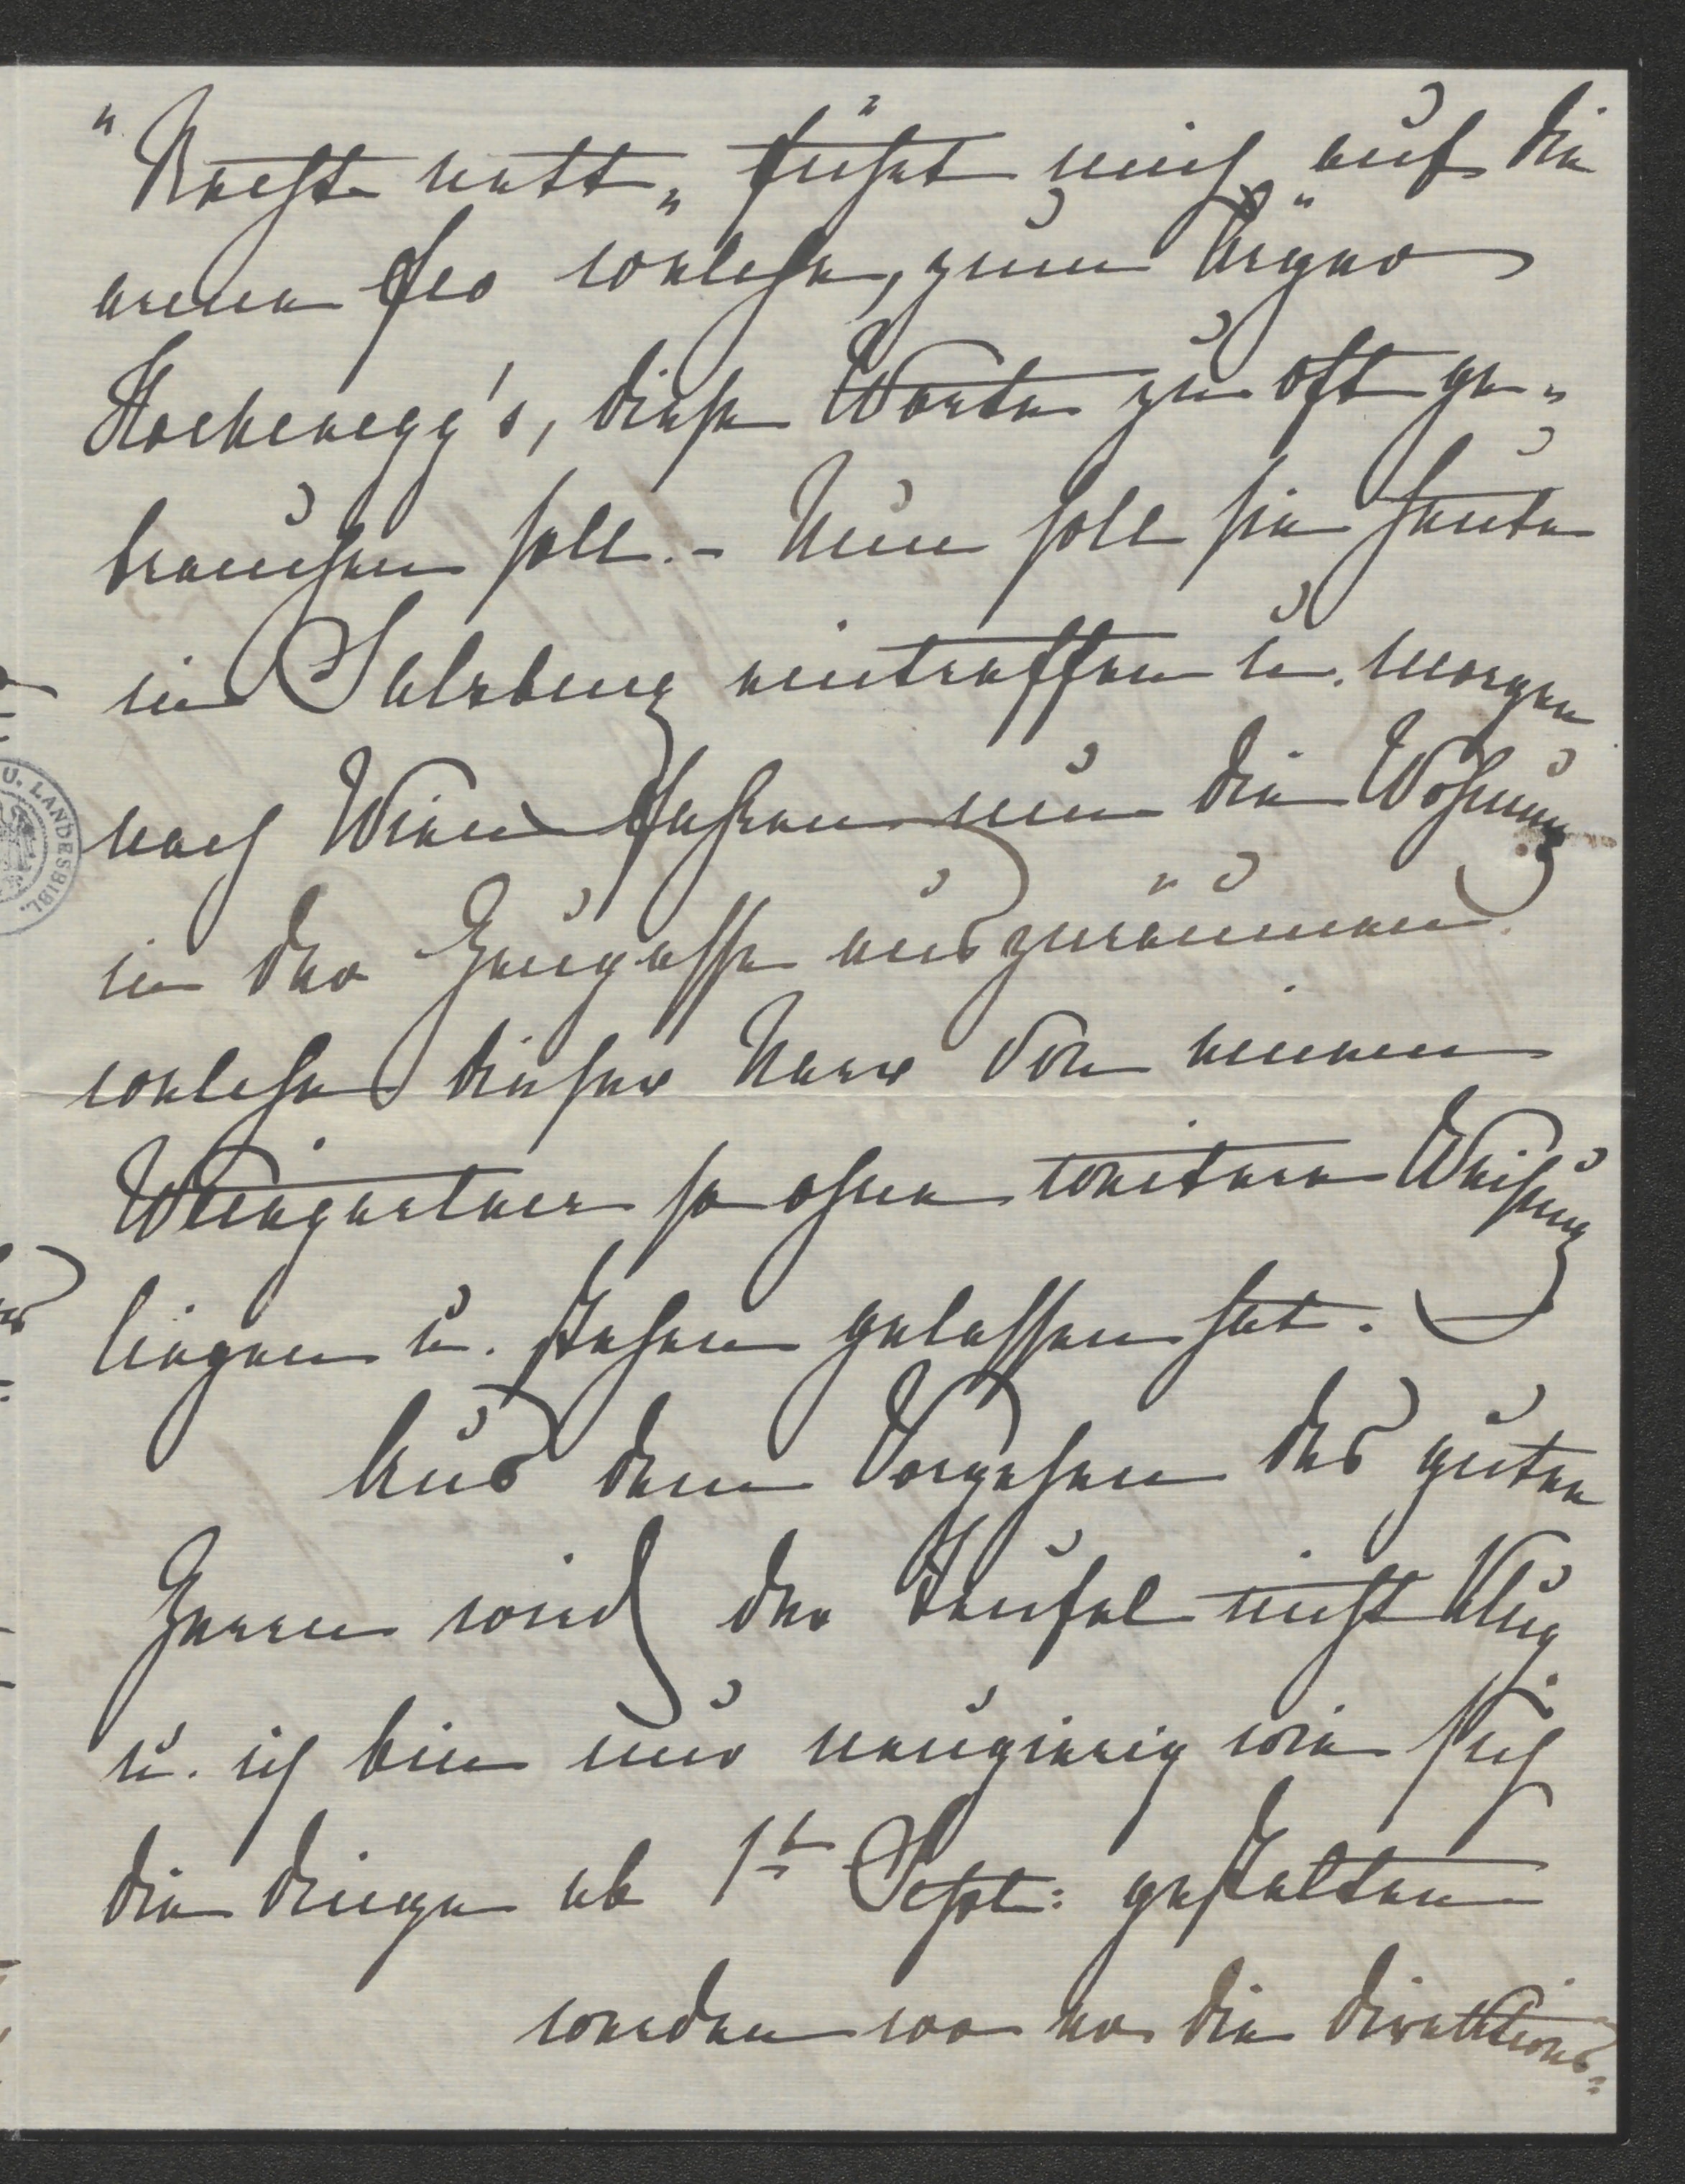 "Recht nett„ führt mich auf die
arme Flo welche, zum Ärger
Hochenegg's, diese Worte zu oft ge„
brauchen soll. – Nun soll sie heute
in Salzburg eintreffen u. morgen
nach Wien fahren um die Wohnung
in der Heugasse auszuräumen
welche dieser Narr von einem
Weingartner so ohne weitere Weisung
liegen u. stehen gelassen hat.
Aus dem Vorgehen des guten
Herrn wird der Teufel nicht klug
u. ich bin nur neugierig wie sich
die Dinge ab 1t Sept: gestalten
werden wo er die Direktions=
U. LANDESBIBL.